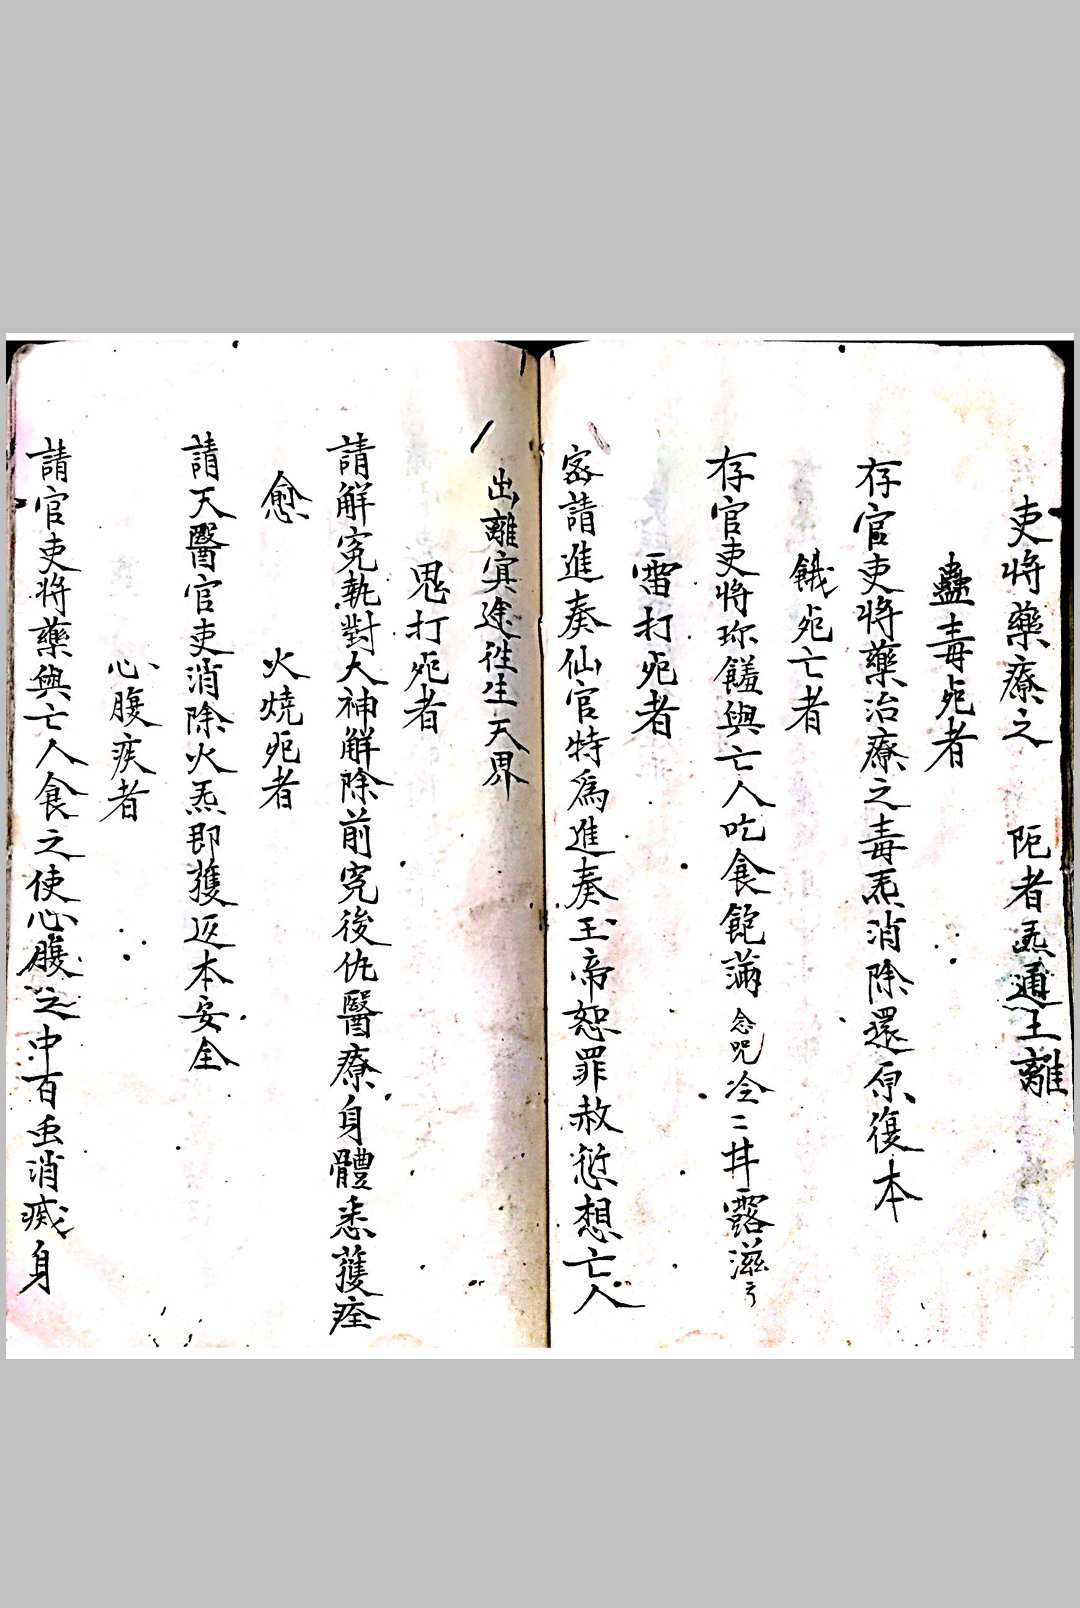 吏將藥療之　阨者炁通王離
蠱毒死者
存官吏將藥治療之毒炁消除還原復本
餓死亡者
存官吏將珎饈與亡人吃食飽滿念咒冷二丼露滋亍
雷打死者
宻請進奏仙官特為進奏玉帝恕罪赦愆想亡人
出離冥途徃生天界
鬼打死者
請解寃執對大神解除前寃後仇醫療身體悉蒦痊
愈　火燒死者
請天醫官吏消除火炁即蒦返本安全
心腹疾者
請官吏將藥與亡人食之使心腹之中百虫消滅身